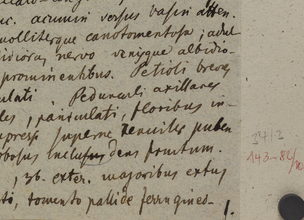 c. acumin versus basin atten.
mollitergue canotomentosa; adul
idiora, nervo venisque albidio
prominentibus. Petioli breves
ulati. Pedunculi axillares
les, paniculati, floribus in-
superne tenuiter puben
includens fructum.
36. exter. majoribus extus
tomento pallide ferrugined-
1.
3413